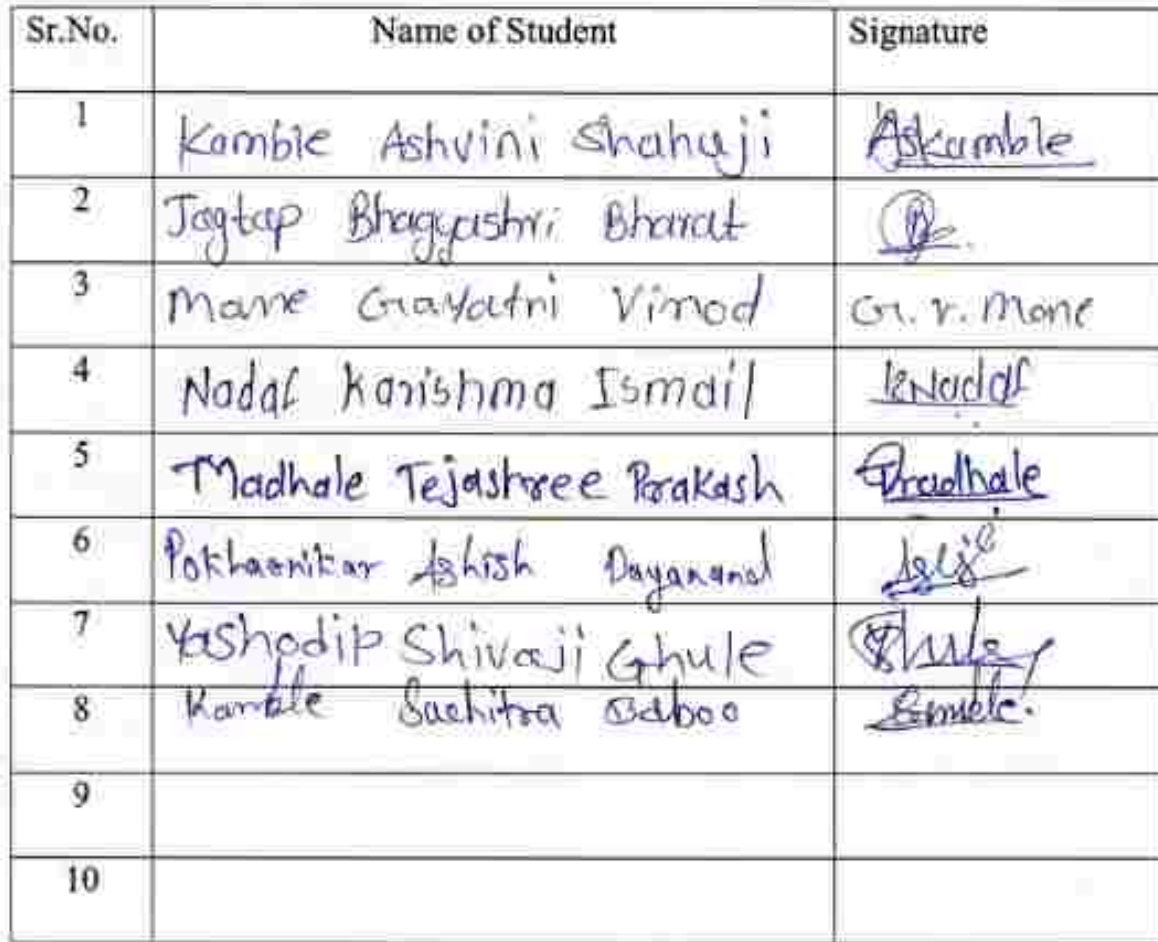 Sr.No. Name of Student Signature
1 Kamble Ashvini Shahuji Askamble
2 Jagtap Bhagyashri Bharat
3 Mane Gayatri Vinod G. V. Mane
4 Nadaf Karishma Ismail KNadaf
5 Madhale Tejashree Prakash
6 Ashish Dayanand
7 Yashodip Shivaji Ghule
8 Kamble Suchitra
9
10